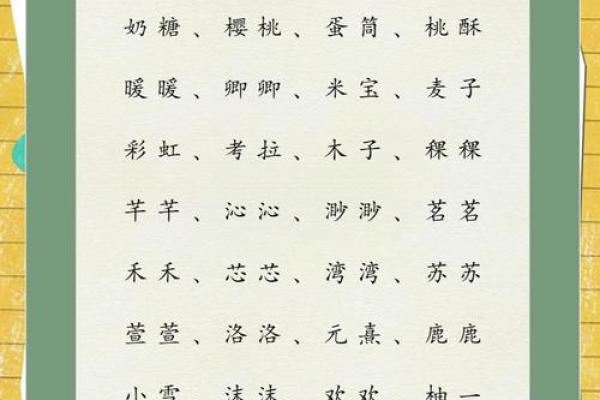 奶糖、樱桃、蛋筒、桃酥
暖暖、卿卿、米宝、麦子
彩虹、考拉、木子、稞稞
芊芊、沁沁、渺渺、茗茗
禾禾、芯芯、湾湾、苏苏
萱萱、洛洛、元熹、鹿鹿
小雪、沫沫、欢欢、柚一